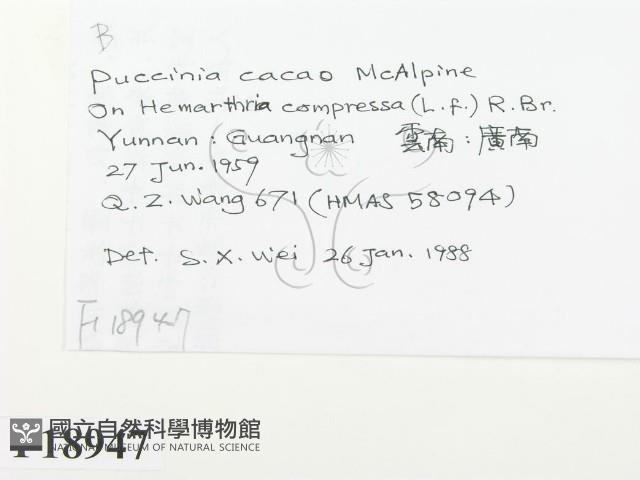 B
Puccinia cacao McAlpine
On Hemarthria compressa (L.f.) R.Br.
Yunnan: Guangnan 雲南:廣南
27 Jun. 1959
Q. Z. Wang 671 (HMAS 58094)
Det. S. X. Wei 26 Jan. 1988
F18947
國立自然科學博物館
NATIONAL MUSEUM OF NATURAL SCIENCE
F18947